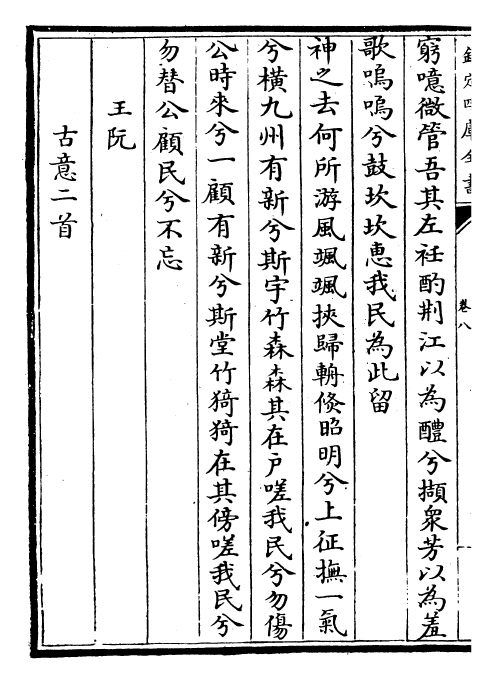 欽定四庫全書
卷八
窮噫微管吾其左衽酌荆江以為醴兮擷衆芳以為羞
歌嗚嗚兮鼓坎坎惠我民為此留
神之去何所游風颯颯挾歸輈倐昭明兮上征撫一氣
兮横九州有新兮斯宇竹森森其在户嗟我民兮勿傷
公時來兮一顧有新兮斯堂竹猗猗在其傍嗟我民兮
勿替公顧民兮不忘
王阮
古意二首